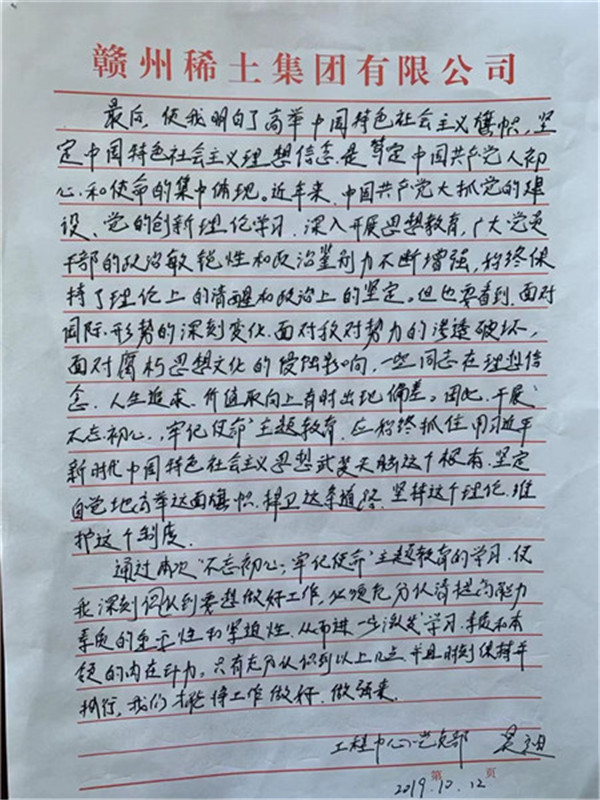 赣州稀土集团有限公司
最后,使我明白了高举中国特色社会主义旗帜,坚
定中国特色社会主义理想信念,是笃定中国共产党人初
心和使命的集中体现。近年来,中国共产党大抓党的建
设、党的创新理论学习,深入开展思想教育,广大党员
干部的政治敏锐性和政治鉴别力不断增强,始终保
持了理论上的清醒和政治上的坚定。但也要看到,面对
国际形势的深刻变化,面对敌对势力的渗透破坏,
面对腐朽思想文化的侵蚀影响,一些同志在理想信
念、人生追求、价值取向上有时出现偏差。因此,开展“
不忘初心,牢记使命”主题教育,应始终抓住用习近平
新时代中国特色社会主义思想武装头脑这个根本,坚定
自觉地高举这面旗帜,捍卫这条道路,坚持这个理论,维
护这个制度。
通过本次“不忘初心,牢记使命”主题教育的学习,使
我深刻认识到要想做好工作,必须充分认清提高能力
素质的重要性和紧迫性,从而进一步激发学习素质和本
领的内在动力。只有充分认识到以上几点,并且时刻保持
执行,我们才能将工作做好、做强来。
工程中心党支部
第 页
2019.10.12